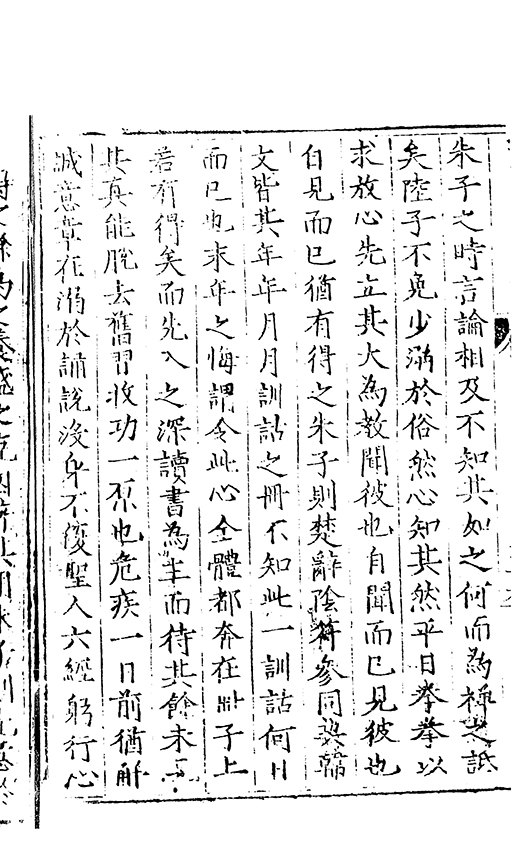 朱子之時言論相及不知其如之何而為禪之詆
矣陸子不免少溺於俗然心知其然平日拳拳以
求放心先立其大為教聞彼也自聞而已見彼也
自見而已猶有得之朱子則楚辭陰符參同契韓
文皆其年年月月訓詁之冊不知此一訓詁何日
而已也末年之悔謂今此心全體都奔在冊子上
若有得矣而先入之深讀書為主而待其餘未
其真能脫去舊習收功一原也危疾一日前猶解
誠意章在溺於誦說沒身不復聖人六經躬行心